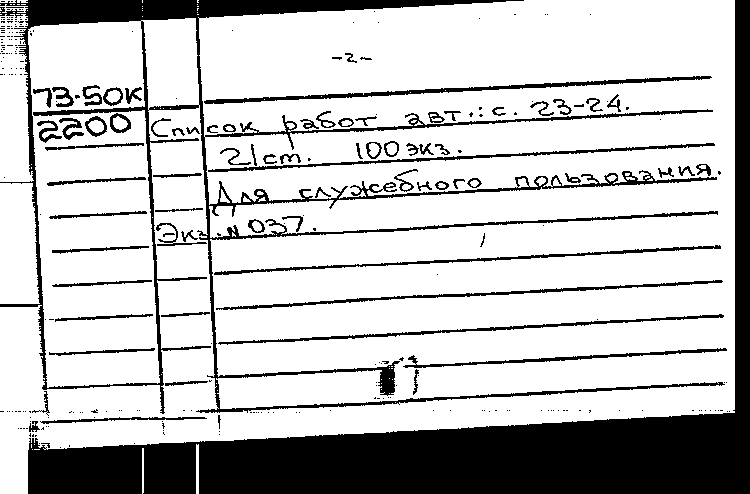 -2-
73-50К
2200 Список работ авт.: с. 23-24.
21см. 100 экз.
Для служебного пользования.
Экз. N 037.